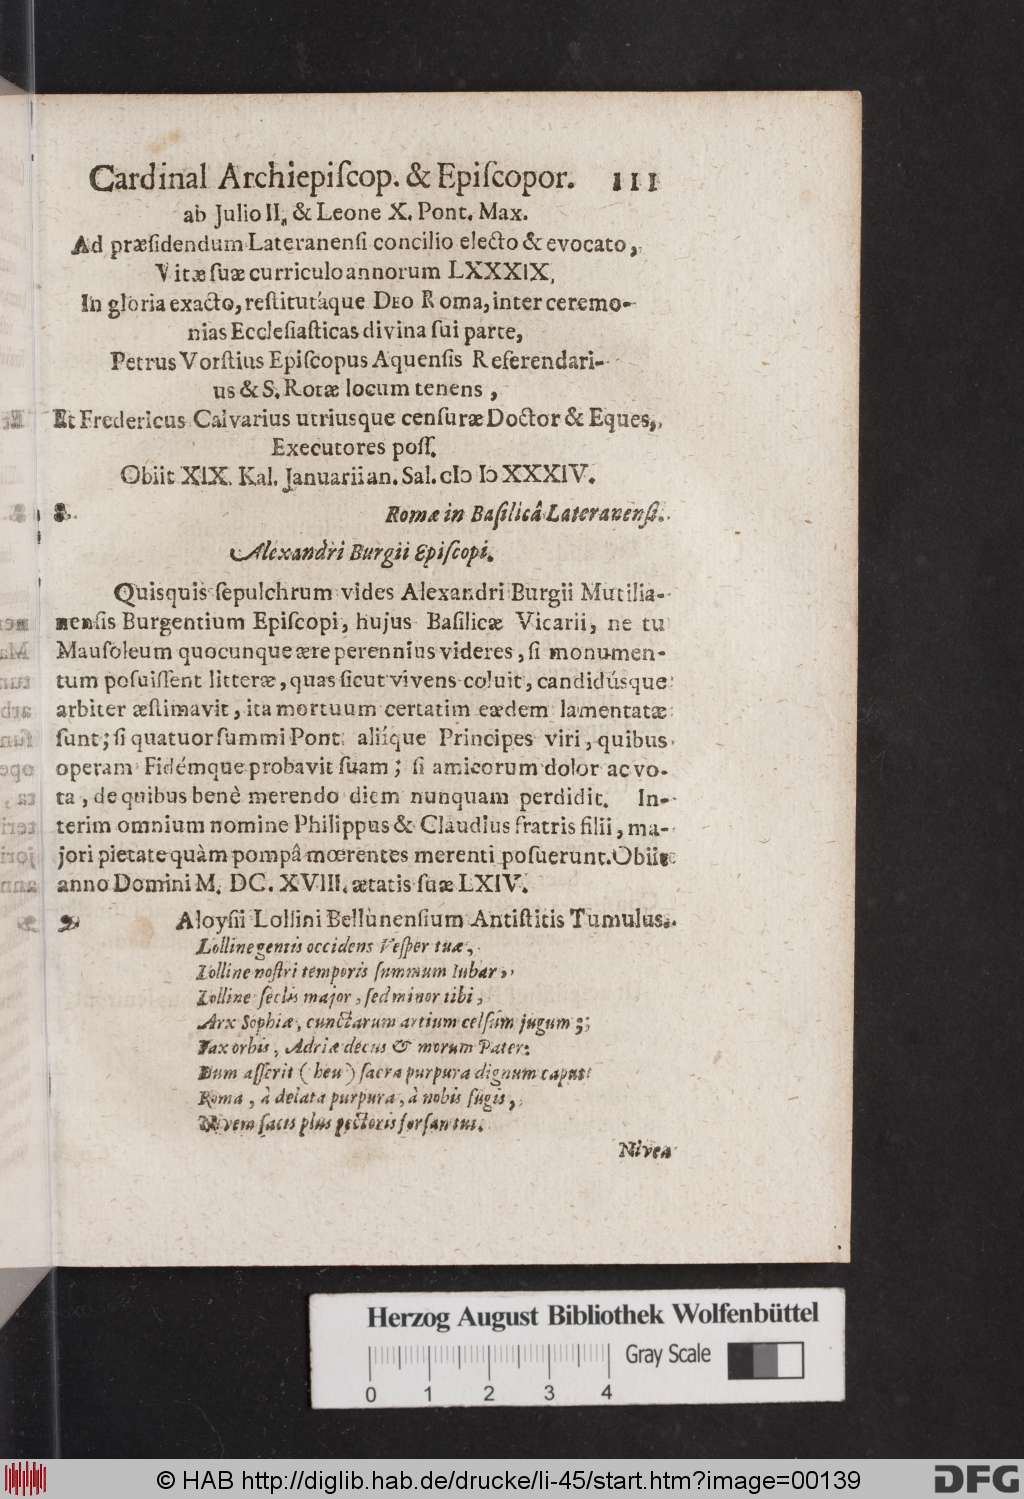 Cardinal Archiepiſcop. & Epiſcopor. 111
ab Julio II, & Leone X. Pont. Max.
Ad præſidendum Lateranenſi concilio electo & evocato,
Vitæ ſuæ curriculo annorum LXXXIX,
In gloria exacto, reſtitutáque DEO Roma, inter ceremo-
nias Eccleſiaſticas divina ſui parte,
Petrus Vorſtius Epiſcopus Aquenſis Referendari-
us & S. Rotæ locum tenens,
Et Fredericus Calvarius utriusque cenſuræ Doctor & Eques,
Executores poſſ.
Obiit XIX. Kal. Januarii an. Sal. cIɔ Iɔ XXXIV.
Romæ in Baſilicâ Lateranenſi.
Alexandri Burgii Epiſcopi.
Quisquis ſepulchrum vides Alexandri Burgii Mutilia-
nenſis Burgentium Epiſcopi, hujus Baſilicæ Vicarii, ne tu
Mauſoleum quocunque ære perennius videres, ſi monumen-
tum poſuiſſent litteræ, quas ſicut vivens coluit, candidúsque
arbiter æſtimavit, ita mortuum certatim eædem lamentatæ
ſunt; ſi quatuor ſummi Pont. aliíque Principes viri, quibus
operam Fidémque probavit ſuam; ſi amicorum dolor ac vo-
ta, de quibus benè merendo diem nunquam perdidit. In-
terim omnium nomine Philippus & Claudius fratris filii, ma-
jori pietate quàm pompâ mœrentes merenti poſuerunt. Obiit
anno Domini M. DC. XVIII. ætatis ſuæ LXIV.
Aloyſii Lollini Bellunenſium Antiſtitis Tumulus.
Lolline gentis occidens Veſper tuæ,
Lolline noſtri temporis ſummum Iubar,
Lolline ſeclis major, ſed minor tibi,
Arx Sophiæ, cunctarum artium celſum jugum;
Fax orbis, Adriæ decus & morum Pater:
Dum aſſerit (heu) ſacra purpura dignum caput
Roma, à delata purpura, à nobis fugis,
Nivem ſacis plus pectoris forſan tui.
Nivea
Herzog August Bibliothek Wolfenbüttel
Gray Scale
0 1 2 3 4
© HAB http://diglib.hab.de/drucke/li-45/start.htm?image=00139
DFG